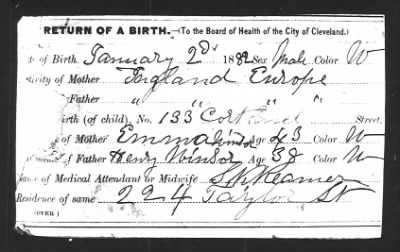 RETURN OF A BIRTH.—(To the Board of Health of the City of Cleveland.)
of Birth, January 2d 1882 Sex Male Color W
tivity of Mother England Europe
Father " " "
irth (of child), No. 133 Street.
of Mother Emma Windsor Age 43 Color W
of Father Henry Windsor Age 38 Color W
of Medical Attendant or Midwife
Residence of same 224 Taylor St
(OVER.)